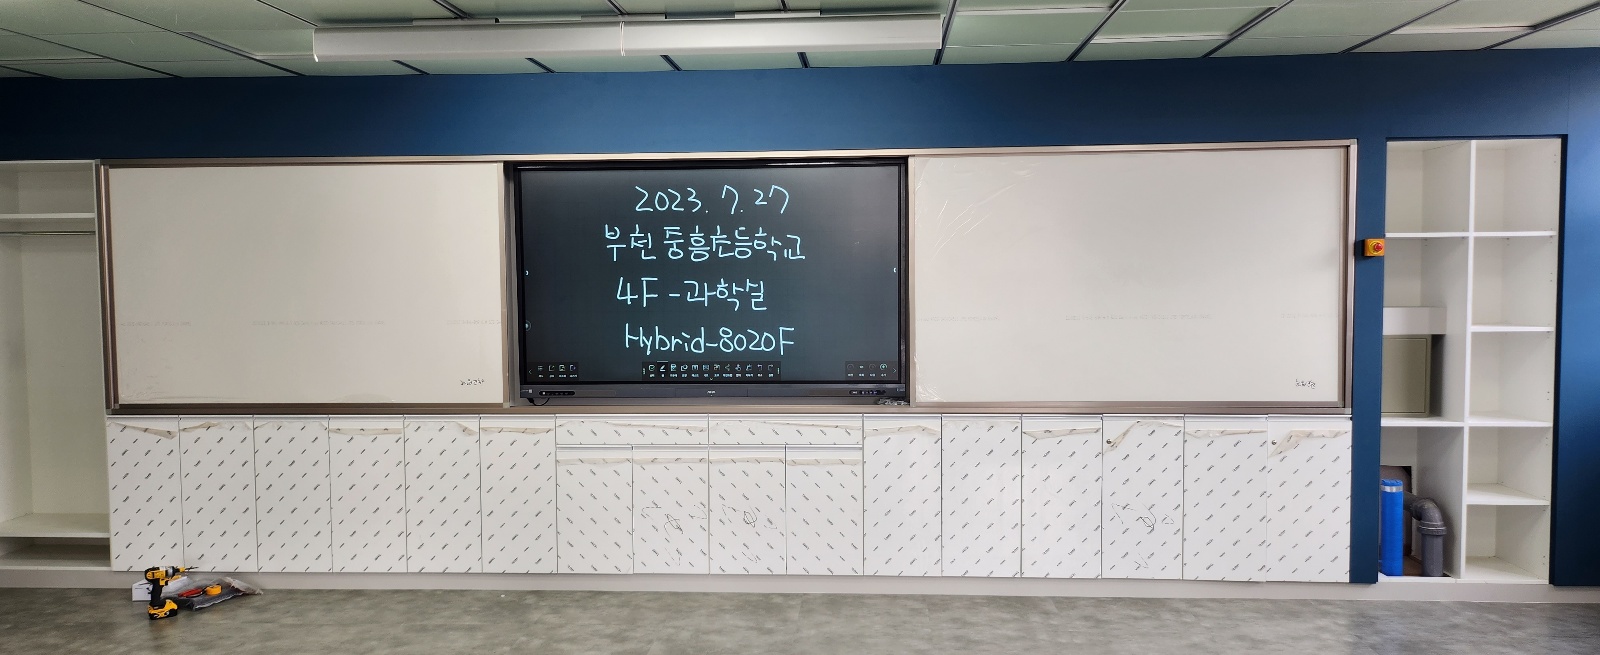 2023. 7. 27
부천 중흥초등학교
4F - 과학실
Hybrid-8020F